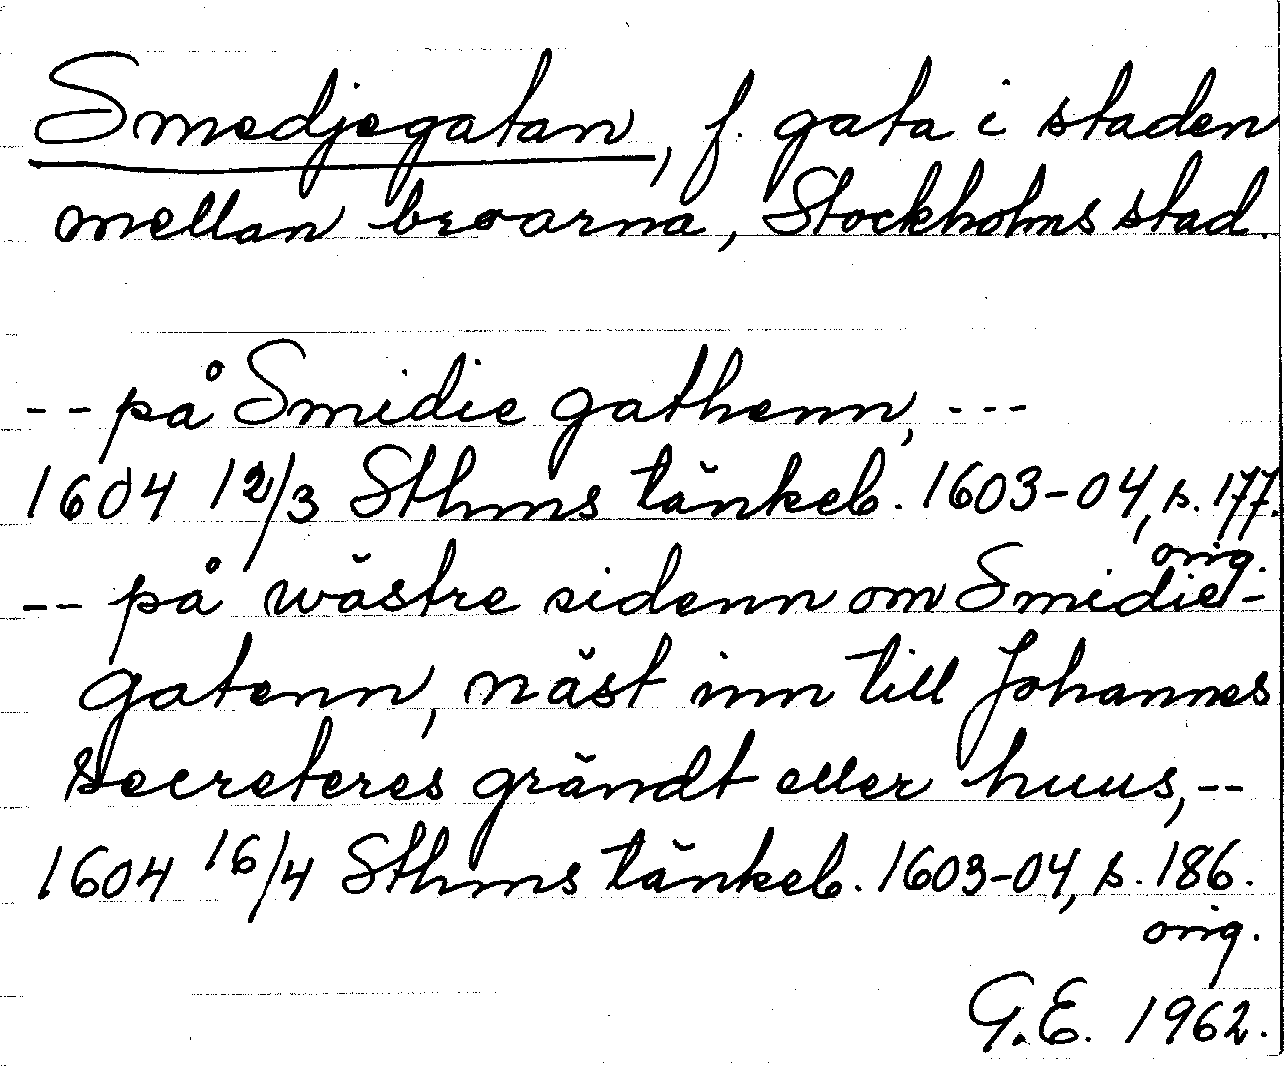 Smedjegatan, f. gata i staden
mellan broarna, Stockholms stad.
-- på Smidie gathenn, ---
1604 12/3 Sthms tänkeb. 1603-04, s. 177.
orig.
-- på wästre sidenn om Smidie-
gatenn, näst inn till Johannes
secreteres grändt eller huus, --
1604 16/4 Sthms tänkeb. 1603-04, s. 186.
orig.
G.E. 1962.